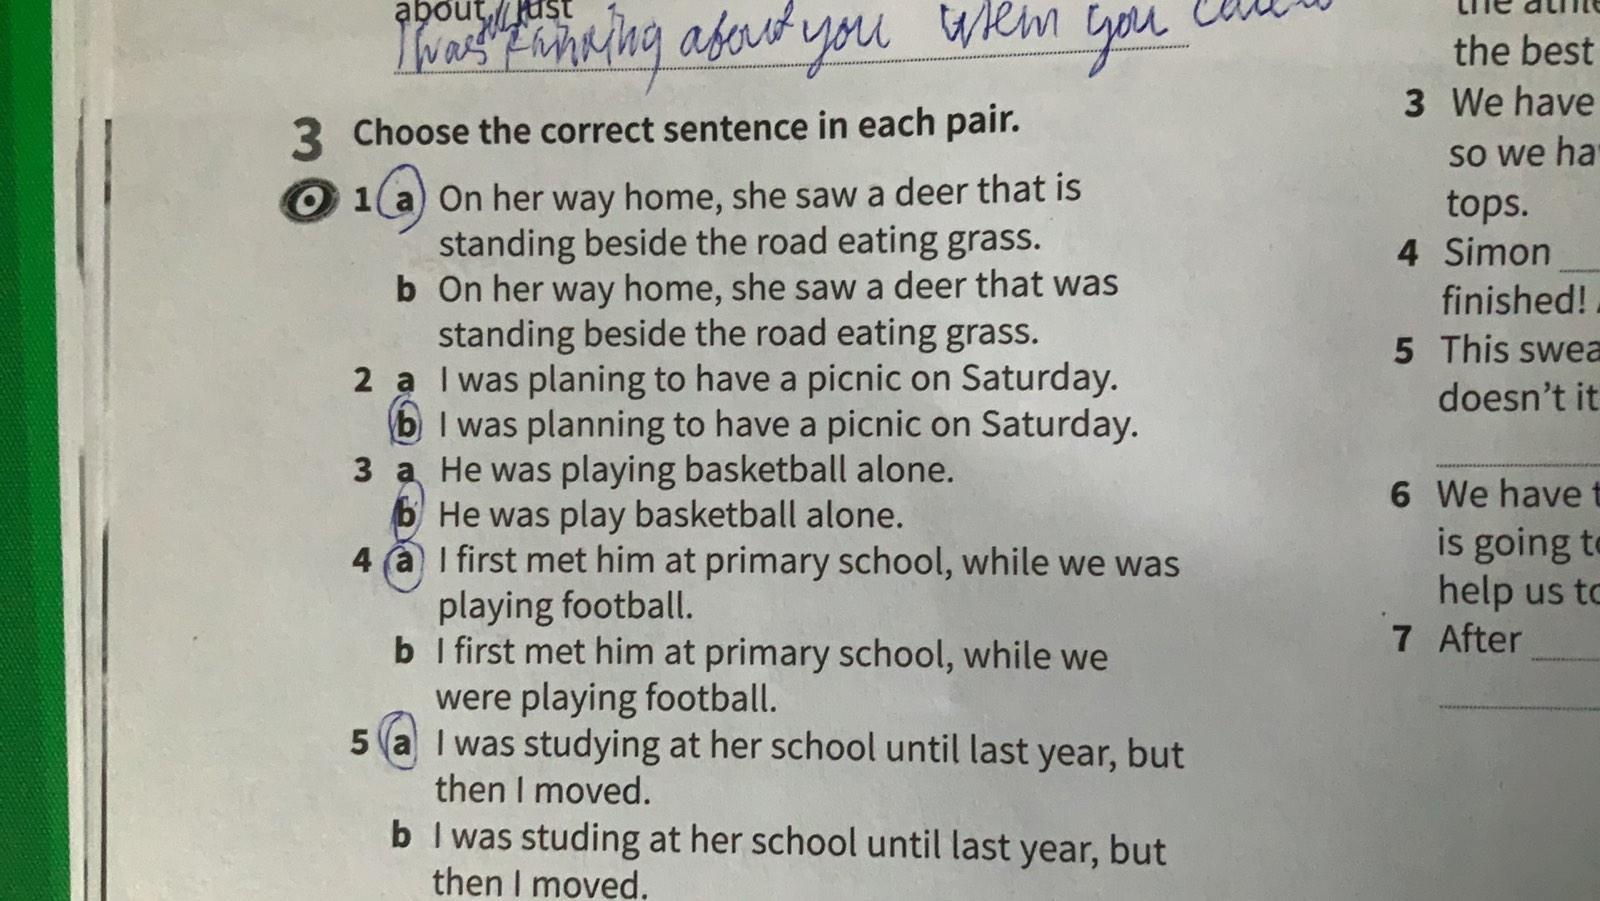 about / just
I was thinking about you when you
3 Choose the correct sentence in each pair.
1 a On her way home, she saw a deer that is
standing beside the road eating grass.
b On her way home, she saw a deer that was
standing beside the road eating grass.
2 a I was planing to have a picnic on Saturday.
b I was planning to have a picnic on Saturday.
3 a He was playing basketball alone.
b He was play basketball alone.
4 a I first met him at primary school, while we was
playing football.
b I first met him at primary school, while we
were playing football.
5 a I was studying at her school until last year, but
then I moved.
b I was studing at her school until last year, but
then I moved.
the best
3 We have
so we ha
tops.
4 Simon
finished!
5 This swea
doesn't it
6 We have t
is going to
help us to
7 After